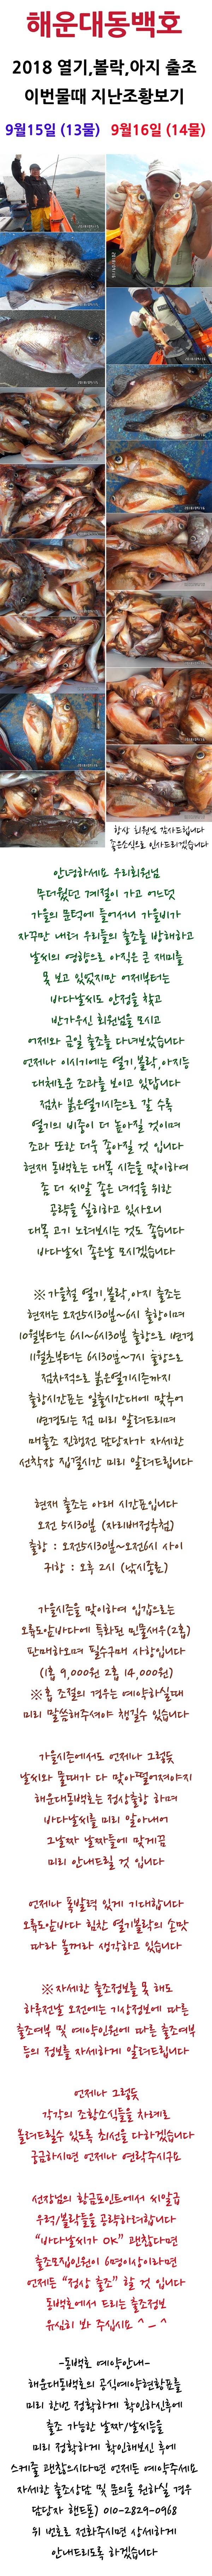 해운대동백호
2018 열기,볼락,아지 출조
이번물때 지난조황보기
9월15일 (13물) 9월16일 (14물)
항상 회원님 감사드립니다
좋은소식으로 인사드리겠습니다
안녕하세요 우리회원님
무더웠던 계절이 가고 어느덧
가을의 문턱에 들어서니 가을비가
자꾸만 내려 우리들의 출조를 방해하고
날씨의 영향으로 아직은 큰 재미를
못 보고 있었지만 어제부터는
바다날씨도 안정을 찾고
반가우신 회원님을 모시고
어제와 금일 출조를 다녀보았습니다
언제나 이시기에는 열기,볼락,아지등
대체로운 조과를 보이고 있답니다
점차 붉은열기시즌으로 갈 수록
열기의 비중이 더 높아질 것이며
조과 또한 더욱 좋아질 것 입니다
현재 동백호는 대목 시즌을 맞이하여
좀 더 씨알 좋은 녀석을 위한
공략을 실히하고 있사오니
대목 고기 노려보시는 것도 좋습니다
바다날씨 좋은날 모시겠습니다
※ 가을철 열기,볼락,아지 출조는
현재는 오전5시30분~6시 출항이며
10월부터는 6시~6시30분 출항으로 변경
11월초부터는 6시30분~7시 출항으로
점차적으로 붉은열기시즌까지
출항시간표는 일출시간대에 맞추어
변경되는 점 미리 알려드리며
매출조 진행전 담당자가 자세한
선착장 집결시간 미리 알려드립니다
현재 출조는 아래 시간표입니다
오전 5시30분 (자리배정추첨)
출항 : 오전5시30분~오전6시 사이
귀항 : 오후 2시 (낚시종료)
가을시즌을 맞이하여 입감으로는
오륙도앞바다에 특화된 민물새우(2홉)
판매하오며 필수구매 사항입니다
(1홉 9,000원 2홉 14,000원)
※ 홉 조절의 경우는 예약하실때
미리 말씀해주셔야 챙길수 있습니다
가을시즌에서도 언제나 그렇듯
날씨와 물때가 다 맞아떨어져야지
해운대동백호는 정상출항 하며
바다날씨를 미리 알아내어
그날짜 날짜들에 맞게끔
미리 안내드릴 것 입니다
언제나 폭발력 있게 기대합니다
오륙도앞바다 힘찬 열기볼락의 손맛
따라 올꺼라 생각하고 있습니다
※자세한 출조정보를 못 해도
하루전날 오전에는 기상정보에 따른
출조여부 및 예약인원에 따른 출조여부
등의 정보를 자세하게 알려드립니다
언제나 그렇듯
각각의 조황소식들을 차례로
올려드릴수 있도록 최선을 다하겠습니다
궁금하시면 언제나 연락주시구요
선장님의 황금포인트에서 씨알급
우럭/볼락들을 공략하려합니다
"바다날씨가 OK" 괜찮다면
출조모집인원이 6명이상이라면
언제든 "정상 출조" 할 것 입니다
동백호에서 드리는 출조정보
유심히 봐 주십시요 ^_^
-동백호 예약안내-
해운대동백호의 공식예약현황표를
미리 한번 정확하게 확인하신후에
출조 가능한 날짜/날씨등을
미리 정확하게 확인해보신 후에
스케줄 괜찮으시다면 언제든 예약주세요
자세한 출조상담 및 문의을 원하실 경우
담당자 핸드폰) 010-2829-0968
위 번호로 전화주시면 상세하게
안내드리도록 하겠습니다